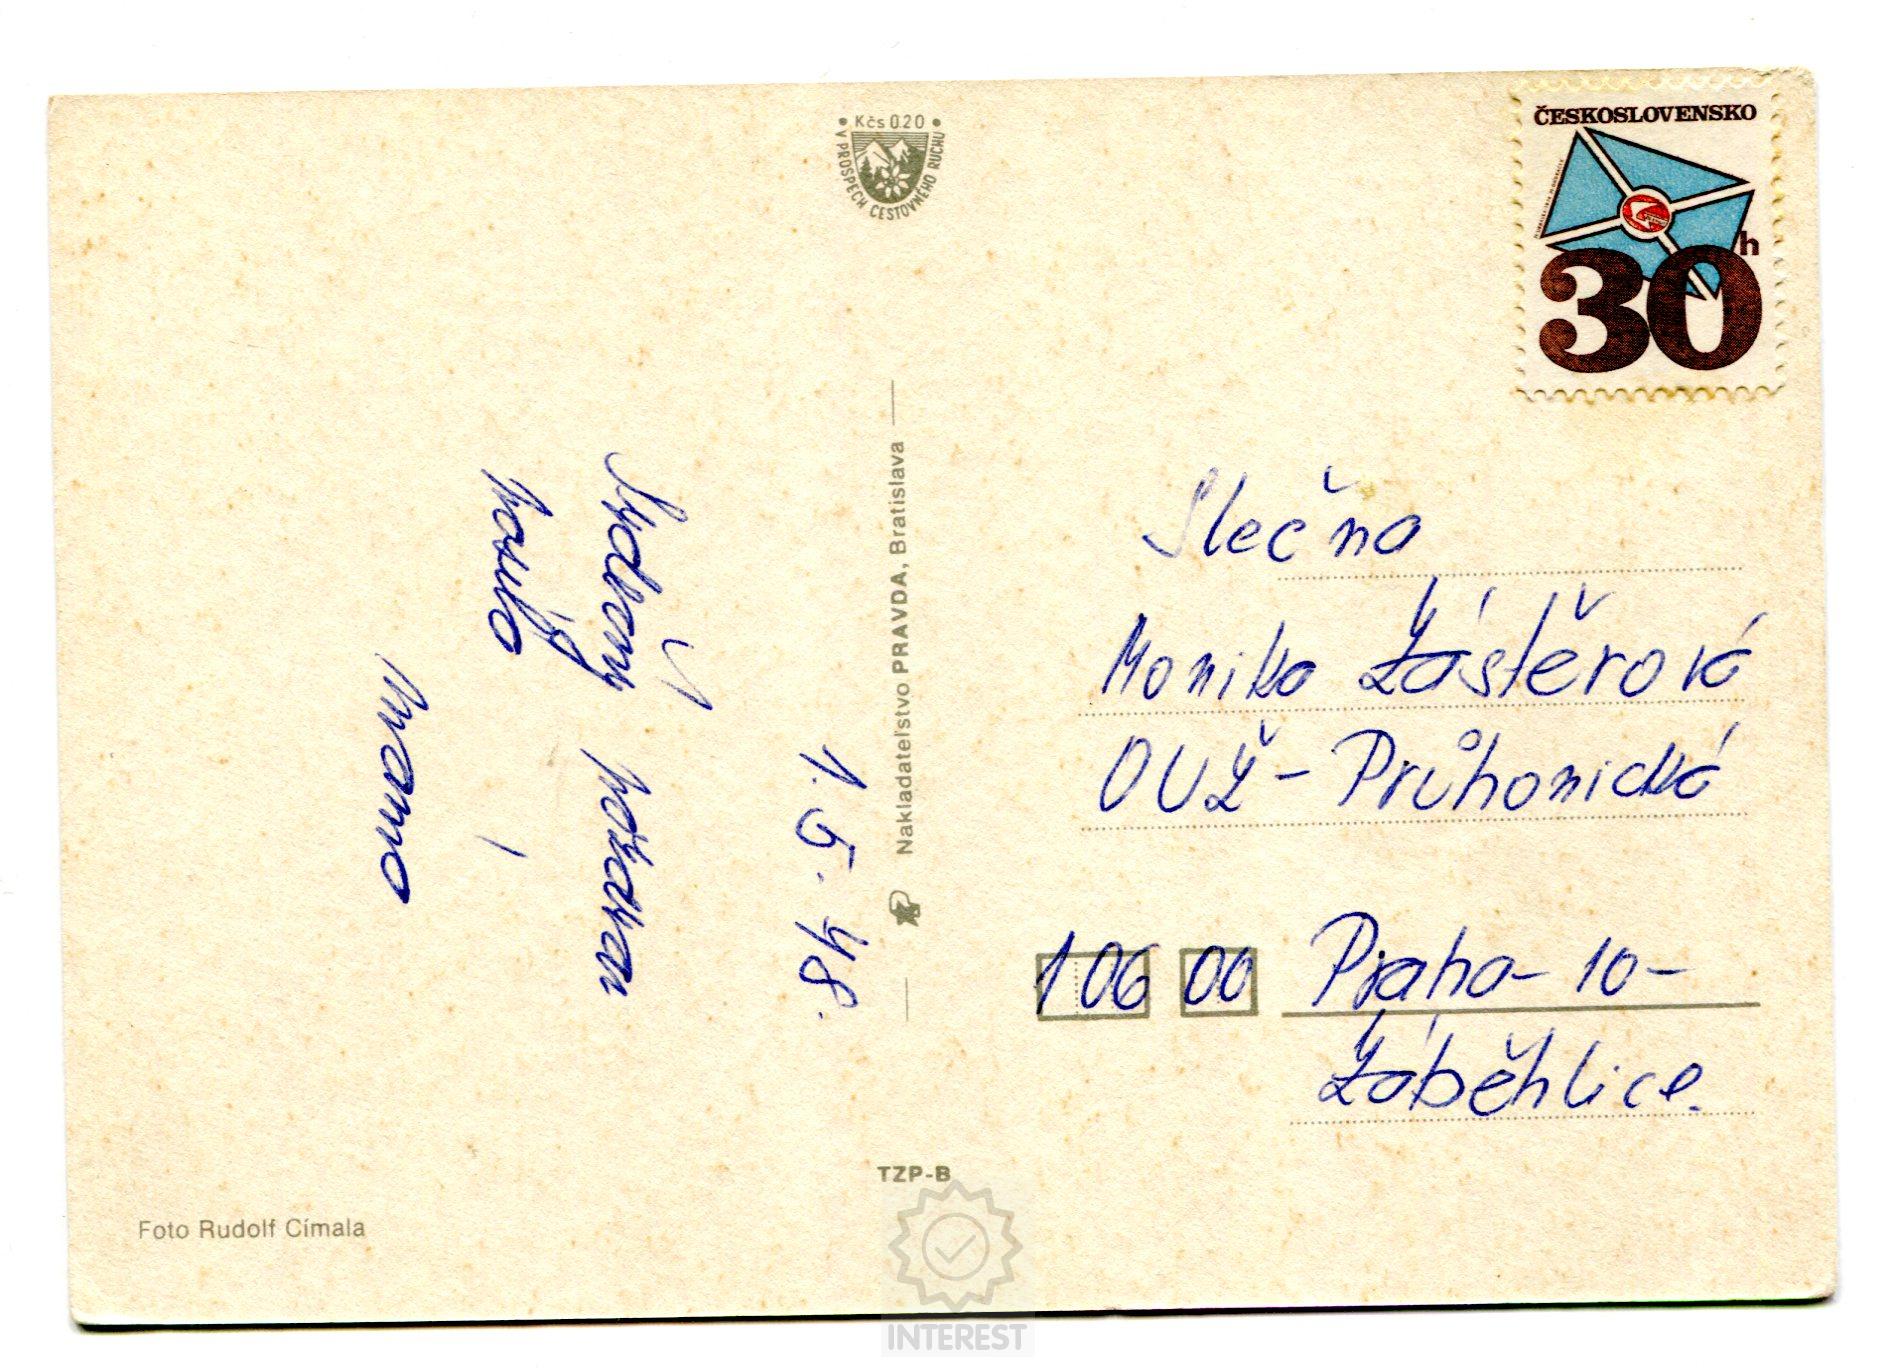 Kčs 0.20
V PROSPECH CESTOVNÉHO RUCHU
ČESKOSLOVENSKO
30 h
1. 5. 48.
Srdečný pozdrav
posílá
mama
Nakladateľstvo PRAVDA, Bratislava
Slečna
Monika Zástěrová
OUŽ - Průhonická
106 00 Praha - 10 -
Záběhlice.
TZP-B
Foto Rudolf Címala
INTEREST